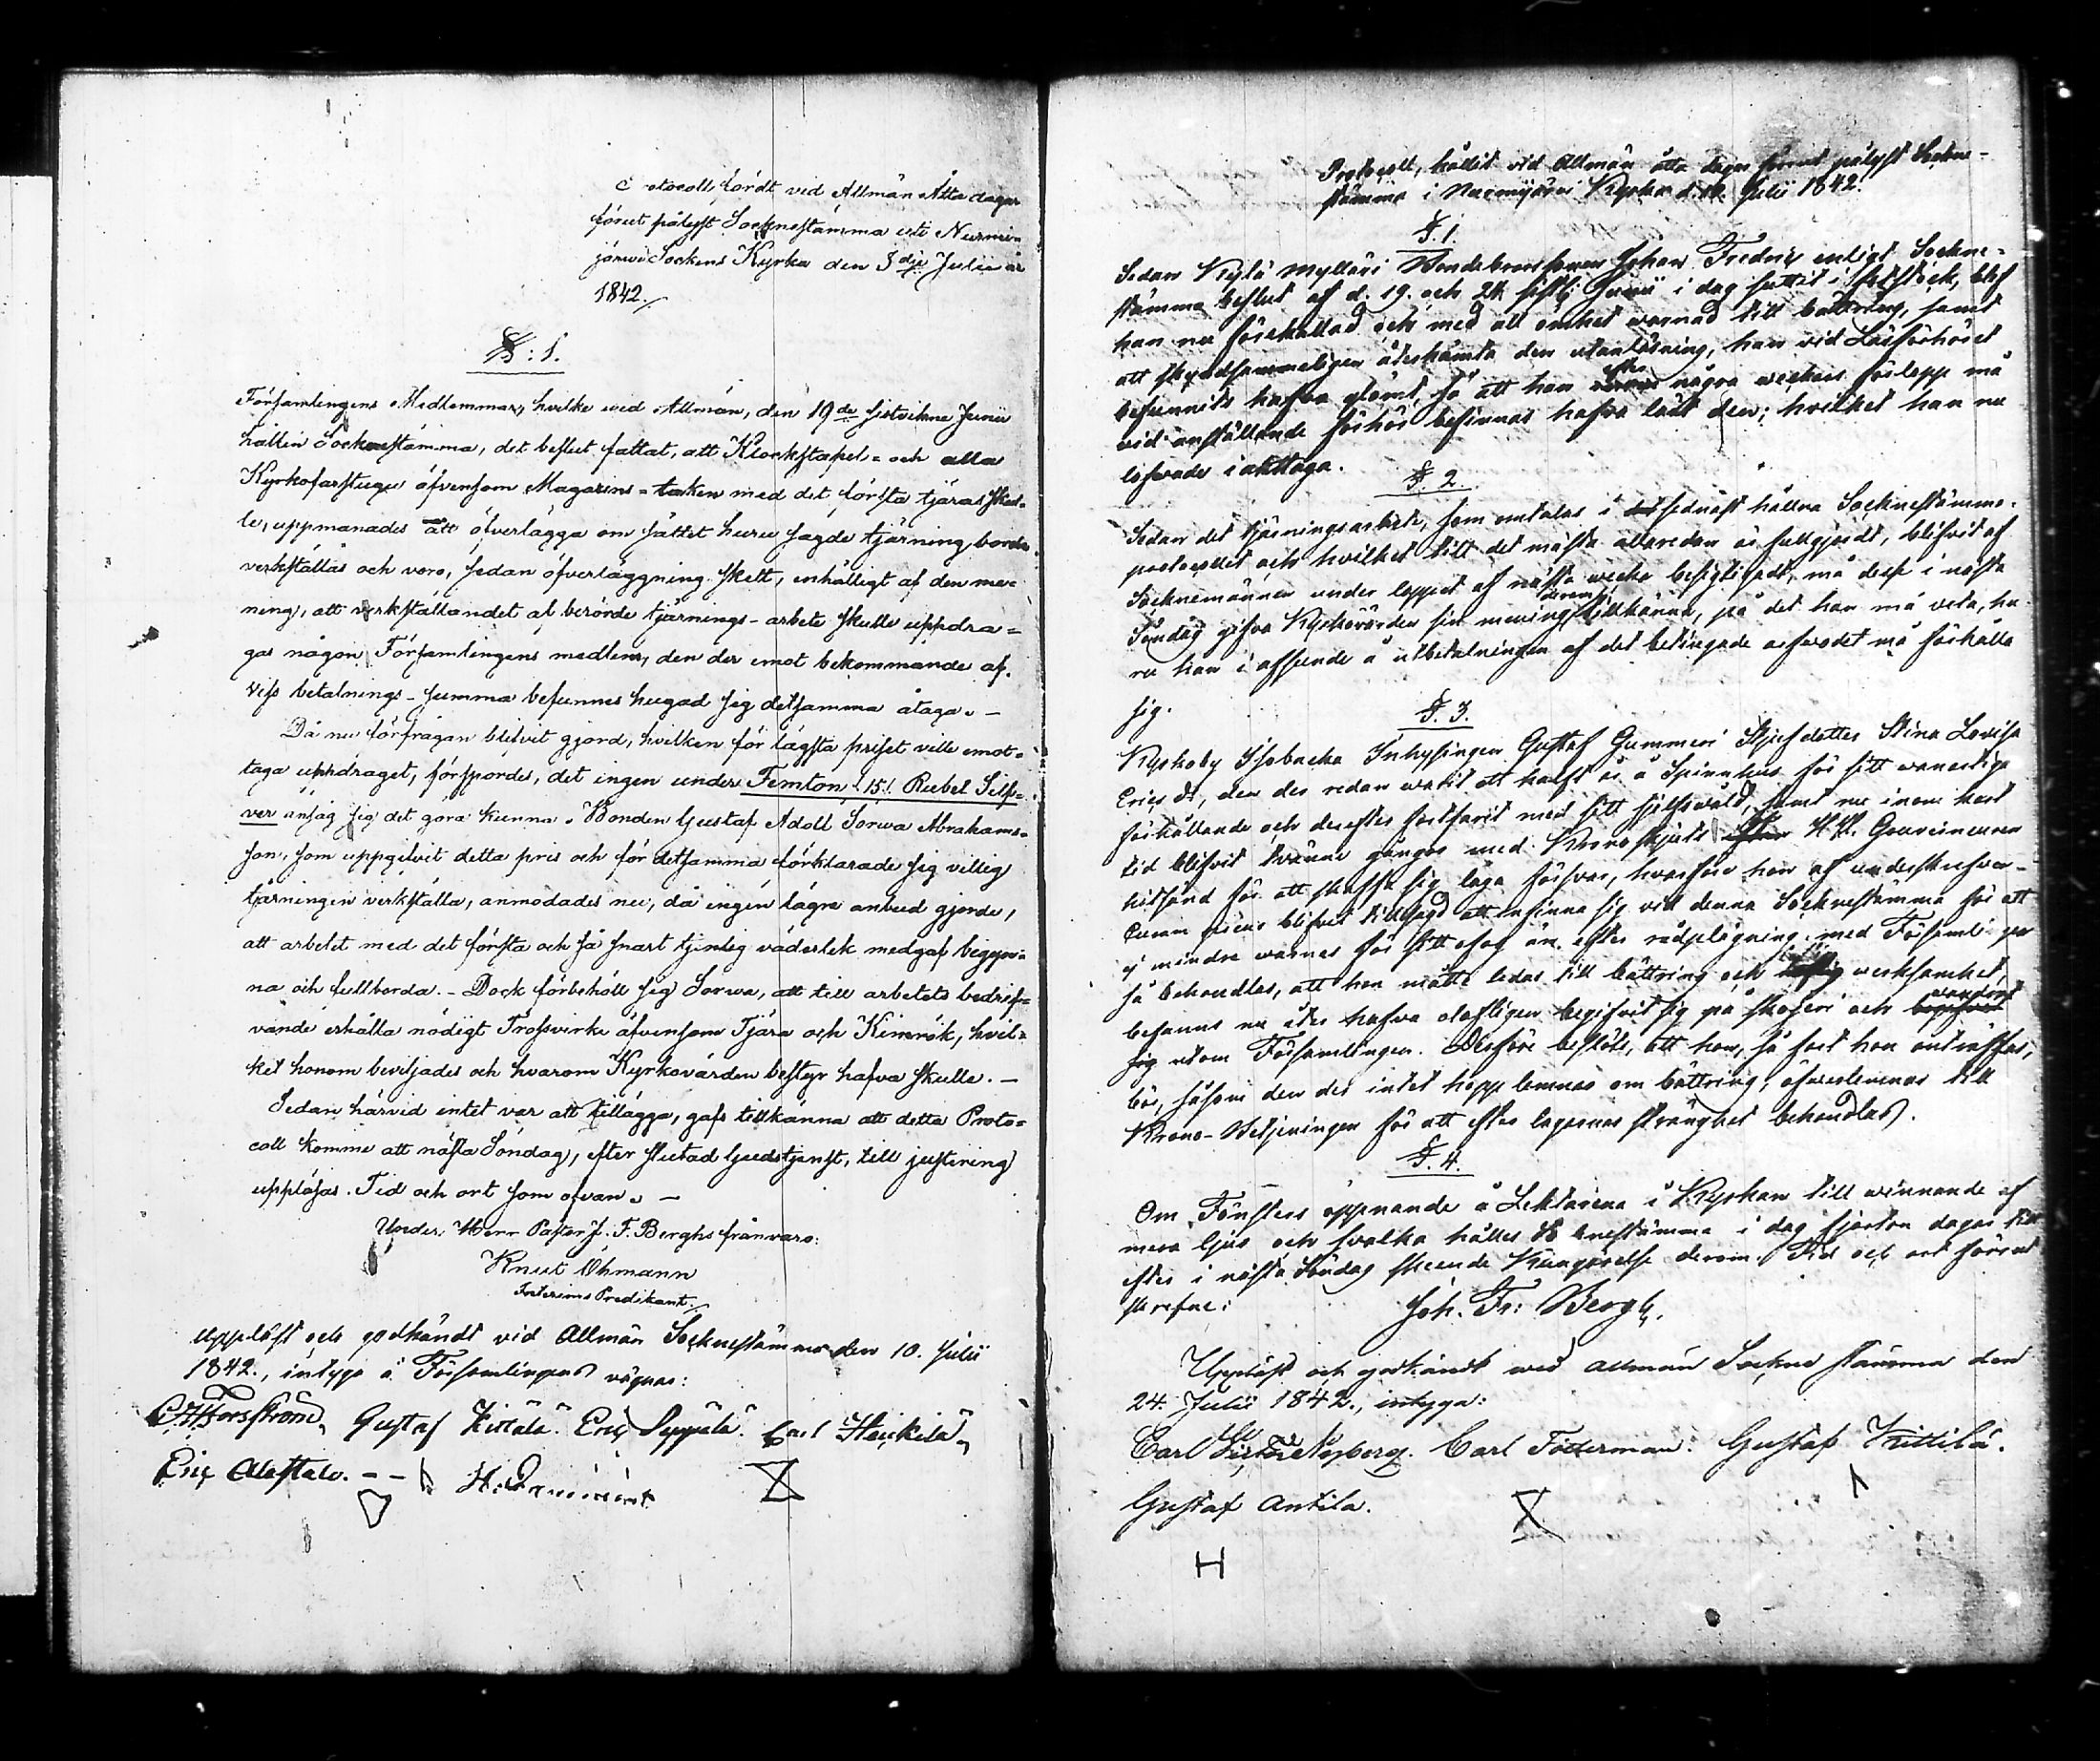 Protocoll fördt vid Allmän Åtta dagar
förut pålyst Sockenstämma uti Nurmi=
järvi Sockens Kyrka den 3dje Julii år
1842./
§: 1.
Församlingens Medlemmar, hvilke wid Allmän, den 19de sistvikne Junii
hållin Sockenstämma, det beslut fattat, att Klockstapel= och alla
Kyrkofarstugu äfvensom Magazins=taken med det första tjäras skul=
le, uppmanades att öfverlägga om sättet huru sagde tjärning borde
verkställas och voro, sedan öfverläggning skett, enhälligt af den me=
ning, att verkställandet af berörde tjärnings-arbete skulle uppdra=
gas någon Församlingens medlem, den der emot bekommande af
viss betalnings-summa befunnes hugad sig detsamma åtaga. —
Då nu förfrågan blifvit gjord, hvilken för lägsta priset ville emot=
taga uppdraget, förspordes, det ingen under Femton (15) Rubel Silf=
ver ansåg sig det göra kunna. Bonden Gustaf Adolf Sorwa Abrahams=
son, som uppgifvit detta pris och för detsamma förklarade sig villig
tjärningen verkställa, anmodades nu, då ingen lägre anbud gjorde,
att arbetet med det första och så snart tjenlig väderlek medgaf begyn=
na och fullborda. — Dock förbehöll sig Sorwa, att till arbetets bedrif=
vande erhålla nödigt Trossvirke äfvensom Tjära och Kimrök, hvil=
ket honom beviljades och hvarom Kyrkovärden bestyr hafva skulle. —
Sedan härvid intet var att tillägga, gafs tillkänna att detta Proto=
coll komme att nästa Söndag, efter slutad Gudstjenst, till justering
uppläsas. Tid och ort som ofvan. —
Under Herr Pastor J. F. Berghs frånvaro:
Knut Öhmann
Interims Predikant./
Uppläst och godkändt vid Allmän Sockenstämma den 10. Julii
1842., intyga å Församlingens vägnar:
Forsström, Gustaf Kittälä. Eric Seppälä. Carl Heickilä,
Eric Alestalo. - -
Protocoll, hållit vid Allmän åtta dagar förut pålyst Sockne-
stämma i Nurmijärvi Kyrka d. 10. Julii 1842.
§. 1.
Sedan Kytä Mylläri Bondebrorsonen Johan Fredric enligt Sockne-
stämma beslut af d. 19. och 24. sistl. Junii i dag suttit i fotstock, blef
han nu förekallad och med all ömhet warnad till bättring, samt
att skyndsammeligen återhämta den utanläsning, han vid Läsförhöret
befunnits hafva glömt, så att han efter några weckors förlopp må
vid anställande förhör befinnas hafva lärt den; hvilket han nu
lofwade i akttaga.
§. 2.
Sedan det tjärningsarbete, som omtalas i sednast hållna Socknestämmo-
protocollet och hvilket till det mästa allaredan är fullgjordt, blifvit af
Socknemännen under loppet af nästa wecka besigtigadt, må desse i nästa
Söndag gifva Kyrkovärden sin mening derom tillkänna, på det han må veta, hu
ru han i afseende å utbetalningen af det betingade arfwodet må förhålla
sig.
§. 3.
Kyrkoby Isobacka Inhysingen Gustaf Gummeri Styfdotter Stina Lovisa
Erics dr, den der redan warit ett halft år å Spinnhus för sitt wanartiga
förhållande och derefter fortfarit med sitt sjelfswåld, samt nu inom kort
tid blifvit twänne gånger med Kronoskjuts från H. W. Gouverneuren
hitsänd för att skaffa sig laga försvar, hvarföre hon af underskrefven
blifvit tillsagd att infinna sig vid denna Socknestämma för att
ej mindre warnas för sitt ofog än efter rådplägning med Församlingen
så behandlas, att hon måtte ledas till bättring och laglig werksamhet,
befanns nu åter hafva olofligen begifvit sig på skojeri och wandrat
sig utom Församlingen. Derföre beslöts, att hon, så fort hon anträffas,
bör, såsom den der intet hopp lemnar om bättring, öfwerlemnas till
Krono-Betjeningen för att efter lagarnas stränghet behandlas.
§. 4.
Om Fönsters öppnande å Lektarena i Kyrkan till winnande af
mera ljus och svalka hålles Socknestämma i dag fjorton dagar till
efter i nästa Söndag skeende Kungörelse derom. Tid och ort förut
skrefne:
Joh. Fr: Bergh.
Uppläst och godkändt wid allmän Sockne stämma den
24. Julii 1842., intyga:
Carl Nyberg. Carl Fotterman. Gustaf Kittilä.
Gustaf Antila.
H